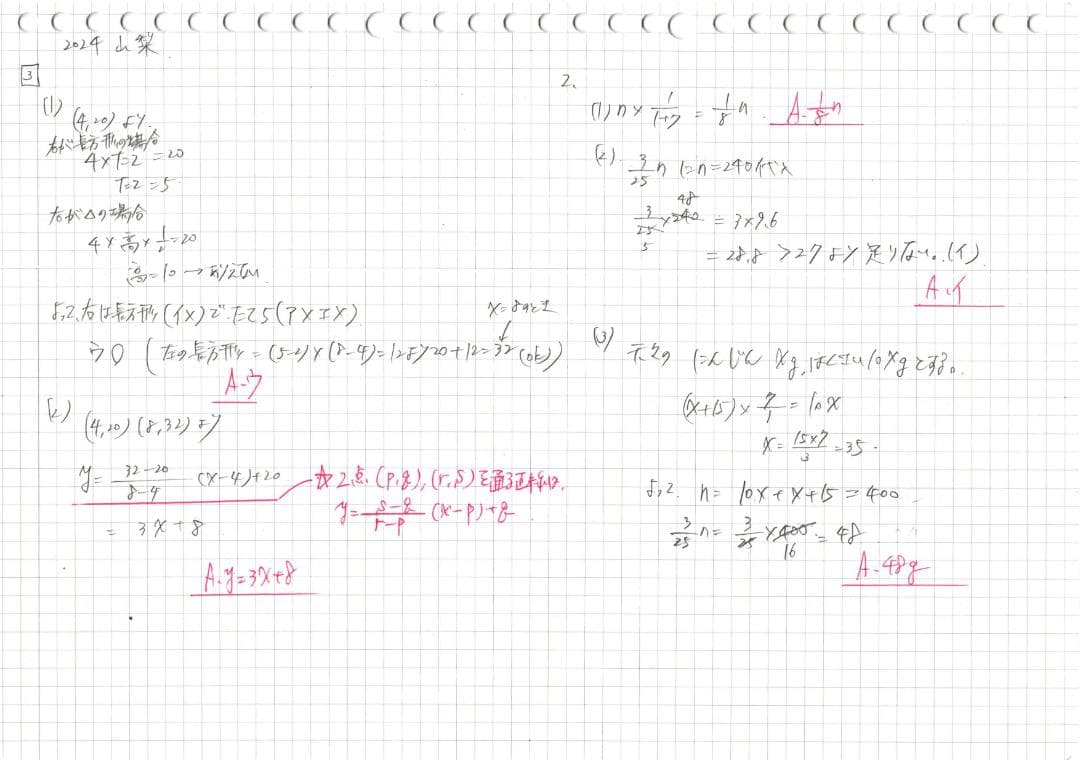 2024 山梨
3
(1)
(4,20)より.
右が長方形の場合
4×たて=20
たて=5
右が△の場合
4×高×1/2=20
高=10→ありえない
よって、右は長方形(イ×)で、たて5(ア×エ×)
x=8のとき
ウ○ (左の長方形=(5-2)×(8-4)=12より20+12=32(ok))
A. ウ
(2)
(4,20)(8,32)より
y=(32-20)/(8-4) (x-4)+20
= 3x+8
☆2点(p,q),(r,s)を通る直線は.
y=(s-q)/(r-p) (x-p)+q
A. y=3x+8
2、
(1) n×1/(1+7) = 1/8 n. A. 1/8 n
(2). 3/25 n にn=240代入
48
3/25×240 = 3×9.6
5
= 28.8 >27より足りない。(イ)
A. イ
(3)
元々の にんじん xg,はくさい10xgとする。
(x+15)×7/1=10x
x=15×7/3=35.
よって. n= 10x+x+15=400
3/25 n= 3/25×400=48
16
A. 48g